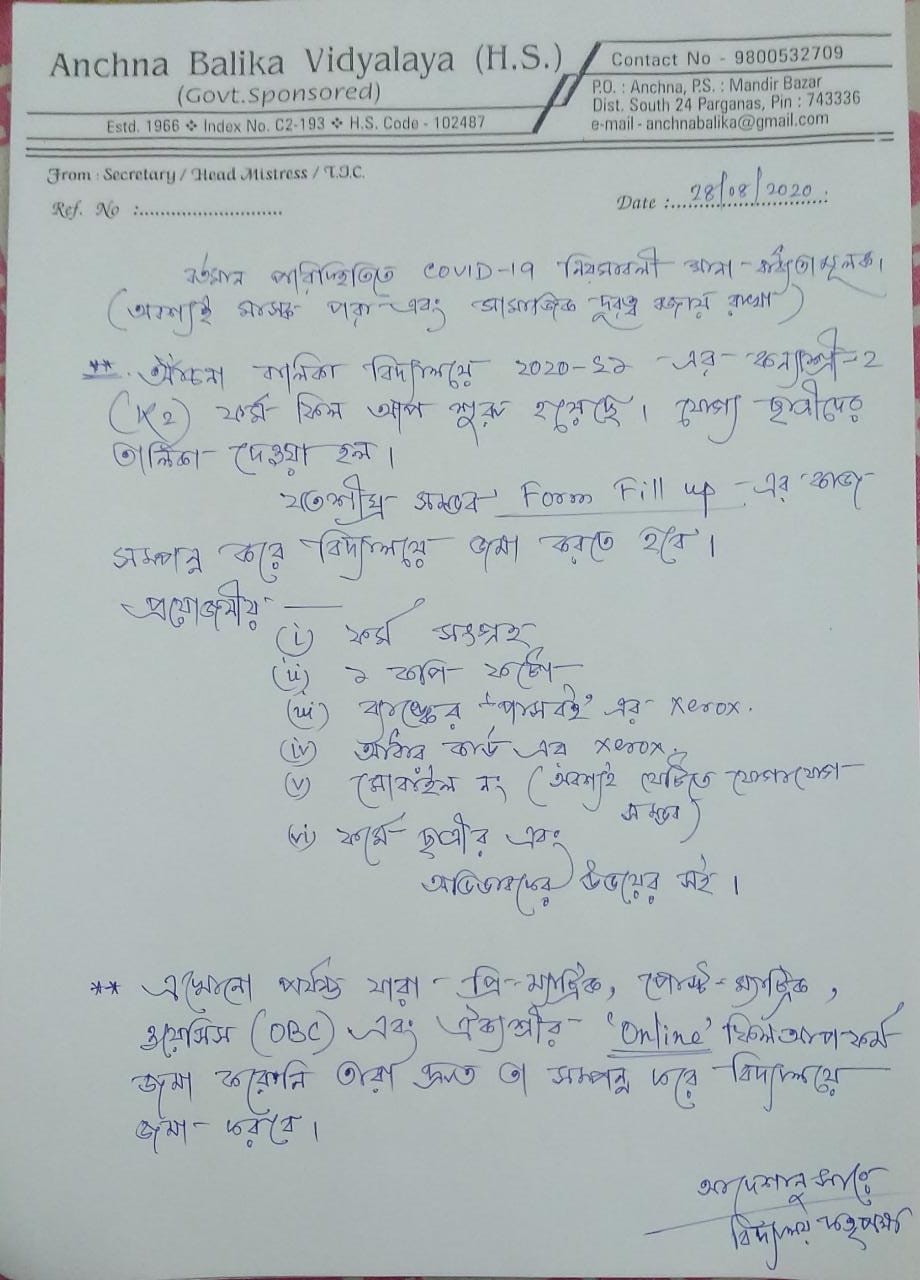 Anchna Balika Vidyalaya (H.S.)
(Govt.Sponsored)
Estd. 1966 ❖ Index No. C2-193 ❖ H.S. Code - 102487
Contact No - 9800532709
P.O. : Anchna, P.S. : Mandir Bazar
Dist. South 24 Parganas, Pin : 743336
e-mail - anchnabalika@gmail.com
From : Secretary / Head Mistress / T.I.C.
Ref. No :...........................
Date :...28/08/2020.
বর্তমান পরিস্থিতিতে COVID-19 নিয়মাবলী মানা বাধ্যতামূলক।
(অবশ্যই মাস্ক পরা এবং সামাজিক দূরত্ব বজায় রাখা)
**. আঁচনা বালিকা বিদ্যালয়ে ২০২০-২১ এর কন্যাশ্রী-২
(K2) ফর্ম ফিল আপ শুরু হয়েছে। যোগ্য ছাত্রীদের
তালিকা দেওয়া হল।
যতশীঘ্র সম্ভব Form Fill up এর কাজ
সম্পন্ন করে বিদ্যালয়ে জমা করতে হবে।
প্রয়োজনীয় —
(i) ফর্ম সংগ্রহ
(ii) ১ কপি ফটো
(iii) ব্যাঙ্কের 'পাসবই' এর xerox.
(iv) আধার কার্ড এর xerox.
(v) মোবাইল নং (অবশ্যই যেটিতে যোগাযোগ
সম্ভব)
(vi) ফর্মে ছাত্রীর এবং
অভিভাবকের উভয়ের সই।
** এখোনো পর্যন্ত যারা প্রি-ম্যাট্রিক, পোস্ট-ম্যাট্রিক,
ওয়েসিস (OBC) এবং ঐক্যশ্রীর 'Online' ফিলআপ ফর্ম
জমা করোনি তারা দ্রুত তা সম্পন্ন করে বিদ্যালয়ে
জমা করবে।
আদেশানুসারে
বিদ্যালয় কর্তৃপক্ষ